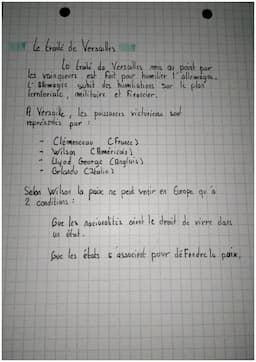 Le traité de Versailles
Le traité de Versailles mis au point par
les vainqueurs est fait pour humilier l'allemagne.
L'allemagne subit des humiliations sur le plan
territoriale, militaire et financier.
A Versaille, les puissances victorieuse sont
représentés par :
- Clémenceau (France)
- Wilson (Américain)
- Llyod George (Anglais)
- Orlando (Italie)
Selon Wilson la paix ne peut venir en Europe qu'a
2 conditions :
Que les nacionalités aient le droit de vivre dans
un état.
Que les états s'associent pour défendre la paix.